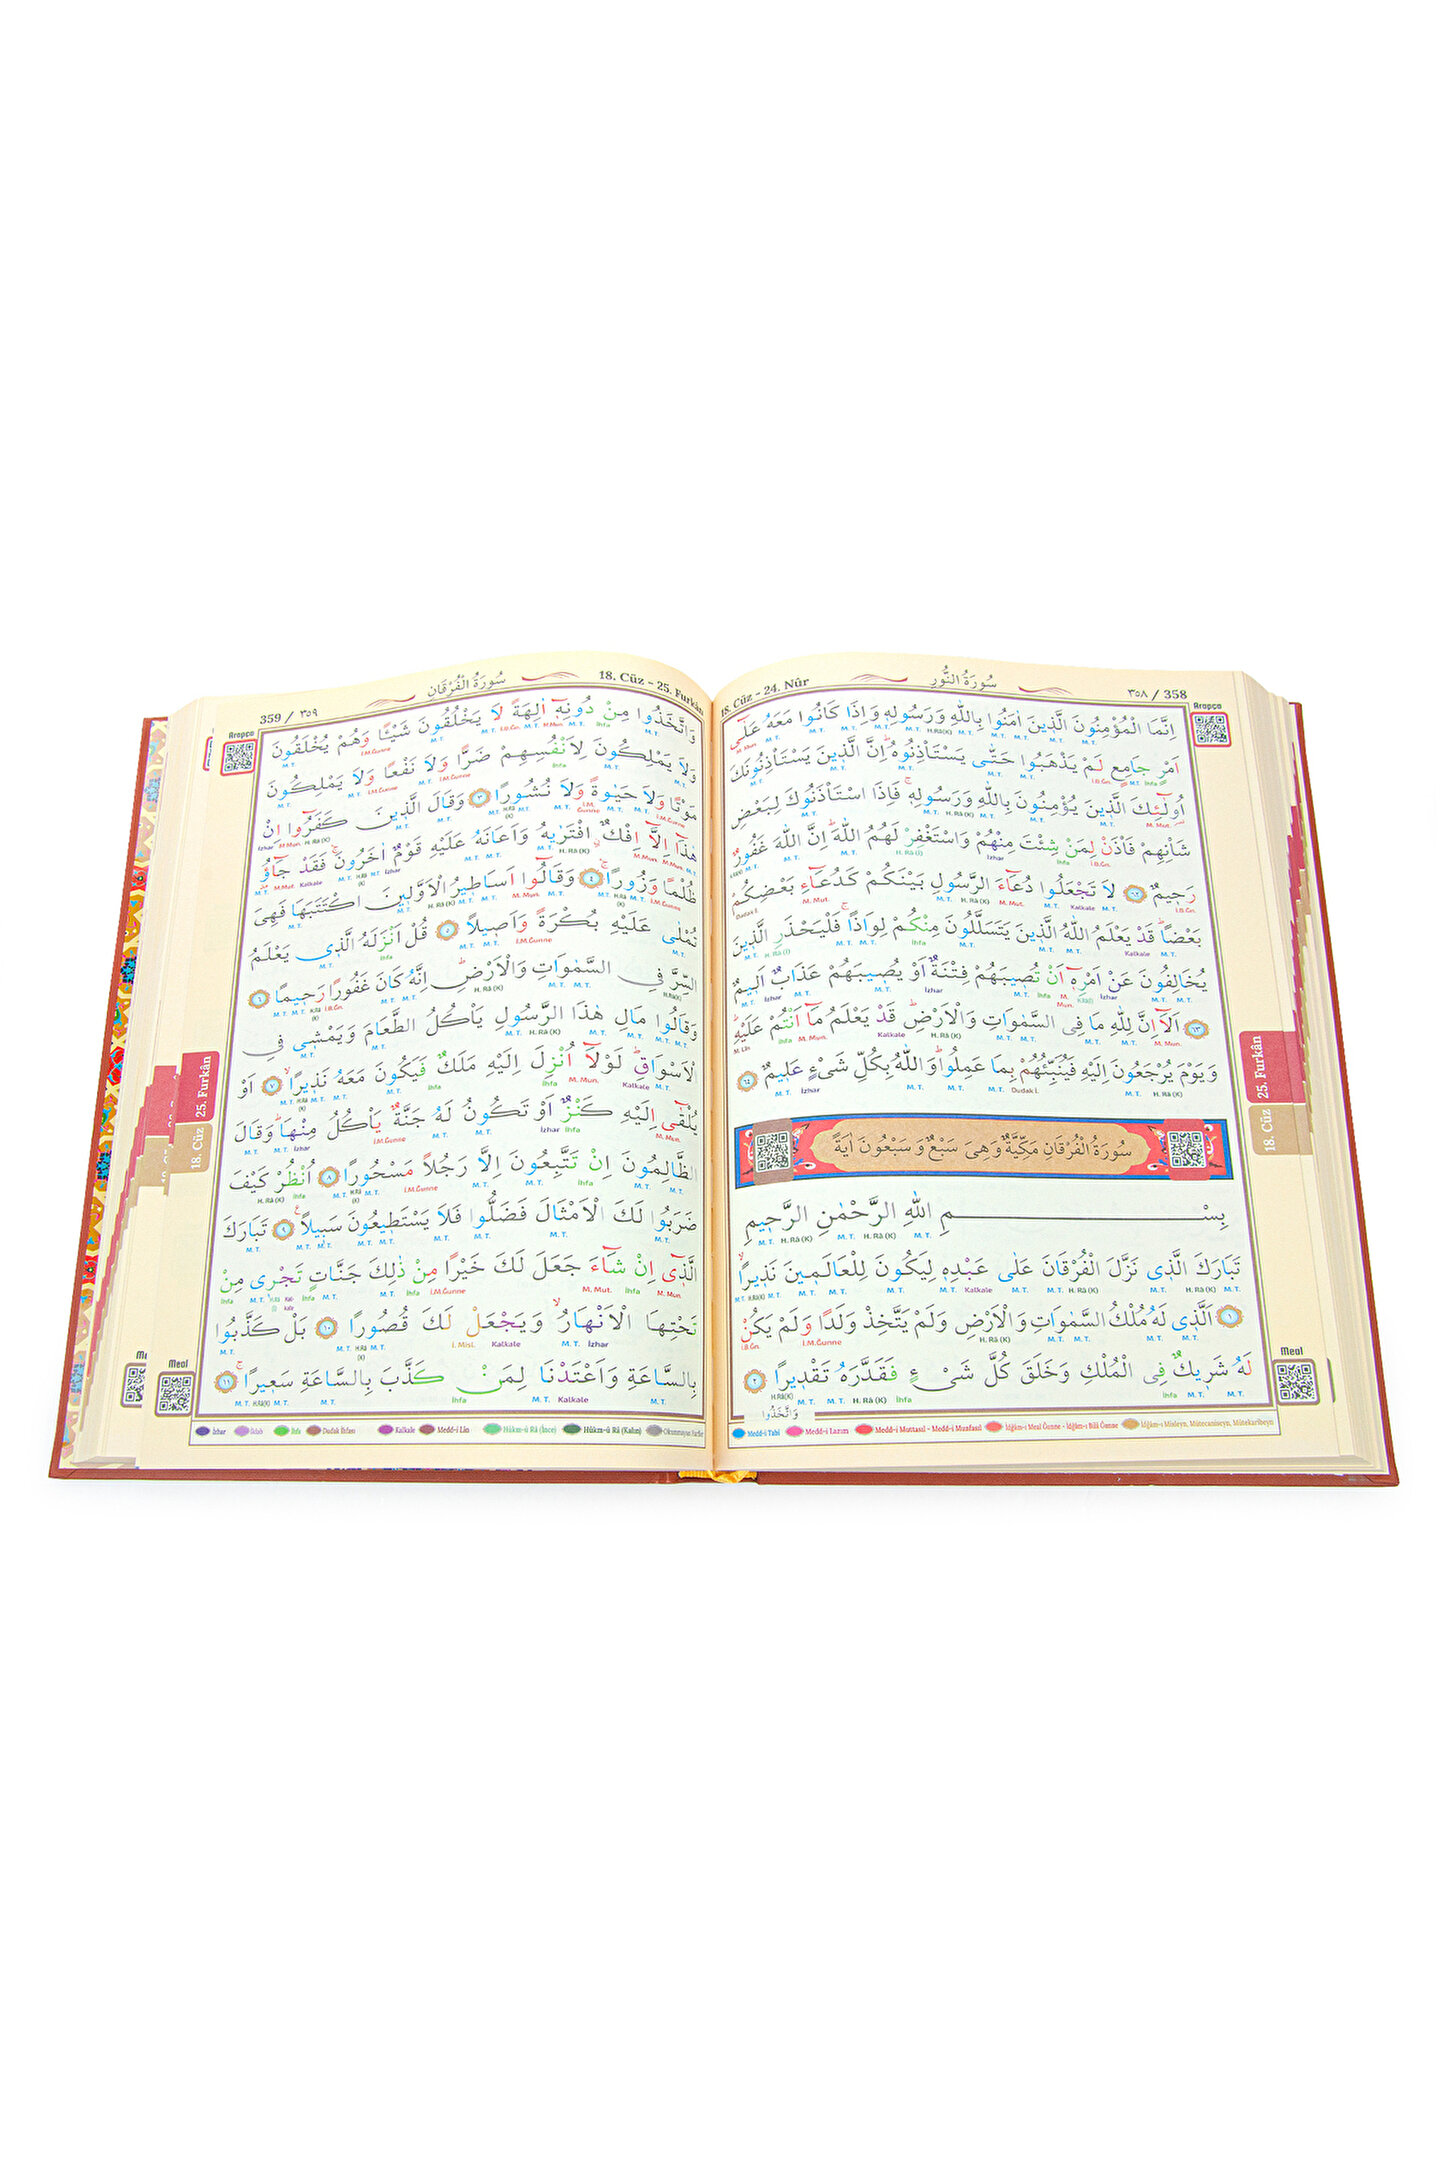 18. Cüz - 24. Nûr
سُورَةُ النُّورِ
٣٥٨ / 358
Arapça
اِنَّمَا الْمُؤْمِنُونَ الَّذ۪ينَ اٰمَنُوا بِاللّٰهِ وَرَسُولِه۪ وَاِذَا كَانُوا مَعَهُ عَلٰٓى
اَمْرٍ جَامِعٍ لَمْ يَذْهَبُوا حَتّٰى يَسْتَأْذِنُوهُۜ اِنَّ الَّذ۪ينَ يَسْتَأْذِنُونَكَ
اُو۬لٰٓئِكَ الَّذ۪ينَ يُؤْمِنُونَ بِاللّٰهِ وَرَسُولِه۪ۚ فَاِذَا اسْتَأْذَنُوكَ لِبَعْضِ
شَأْنِهِمْ فَأْذَنْ لِمَنْ شِئْتَ مِنْهُمْ وَاسْتَغْفِرْ لَهُمُ اللّٰهَۜ اِنَّ اللّٰهَ غَفُورٌ
رَح۪يمٌ ﴿٦٢﴾ لَا تَجْعَلُوا دُعَٓاءَ الرَّسُولِ بَيْنَكُمْ كَدُعَٓاءِ بَعْضِكُمْ
بَعْضًاۜ قَدْ يَعْلَمُ اللّٰهُ الَّذ۪ينَ يَتَسَلَّلُونَ مِنْكُمْ لِوَاذًاۚ فَلْيَحْذَرِ الَّذ۪ينَ
يُخَالِفُونَ عَنْ اَمْرِه۪ٓ اَنْ تُص۪يبَهُمْ فِتْنَةٌ اَوْ يُص۪يبَهُمْ عَذَابٌ اَل۪يمٌ
﴿٦٣﴾ اَلَٓا اِنَّ لِلّٰهِ مَا فِى السَّمٰوَاتِ وَالْاَرْضِۜ قَدْ يَعْلَمُ مَٓا اَنْتُمْ عَلَيْهِۜ
وَيَوْمَ يُرْجَعُونَ اِلَيْهِ فَيُنَبِّئُهُمْ بِمَا عَمِلُواۜ وَاللّٰهُ بِكُلِّ شَىْءٍ عَل۪يمٌ ﴿٦٤﴾
سُورَةُ الْفُرْقَانِ مَكِّيَّةٌ وَهِىَ سَبْعٌ وَسَبْعُونَ اٰيَةً
بِسْمِ اللّٰهِ الرَّحْمٰنِ الرَّح۪يمِ
تَبَارَكَ الَّذ۪ى نَزَّلَ الْفُرْقَانَ عَلٰى عَبْدِه۪ لِيَكُونَ لِلْعَالَم۪ينَ نَذ۪يرًاۙ
﴿١﴾ اَلَّذ۪ى لَهُ مُلْكُ السَّمٰوَاتِ وَالْاَرْضِ وَلَمْ يَتَّخِذْ وَلَدًا وَلَمْ يَكُنْ
لَهُ شَر۪يكٌ فِى الْمُلْكِ وَخَلَقَ كُلَّ شَىْءٍ فَقَدَّرَهُ تَقْد۪يرًا ﴿٢﴾
وَاتَّخَذُوا
25. Furkân
18. Cüz
Meal
Medd-i Tabî Medd-i Lazım Medd-i Muttasıl - Medd-i Munfasıl İdğâm-ı Meal Ğunne - İdğâm-ı Bilâ Ğunne İdğâm-ı Misleyn, Mütecaniseyn, Mütekaribeyn
359 / ٣٥٩
سُورَةُ الْفُرْقَانِ
18. Cüz - 25. Furkân
Arapça
وَاتَّخَذُوا مِنْ دُونِه۪ٓ اٰلِهَةً لَا يَخْلُقُونَ شَيْـًٔا وَهُمْ يُخْلَقُونَ
وَلَا يَمْلِكُونَ لِاَنْفُسِهِمْ ضَرًّا وَلَا نَفْعًا وَلَا يَمْلِكُونَ
مَوْتًا وَلَا حَيٰوةً وَلَا نُشُورًا ﴿٣﴾ وَقَالَ الَّذ۪ينَ كَفَرُٓوا اِنْ
هٰذَٓا اِلَّٓا اِفْكٌۨ افْتَرٰيهُ وَاَعَانَهُ عَلَيْهِ قَوْمٌ اٰخَرُونَۚ فَقَدْ جَٓاؤُ۫
ظُلْمًا وَزُورًاۚ ﴿٤﴾ وَقَالُٓوا اَسَاط۪يرُ الْاَوَّل۪ينَ اكْتَتَبَهَا فَهِىَ
تُمْلٰى عَلَيْهِ بُكْرَةً وَاَص۪يلًا ﴿٥﴾ قُلْ اَنْزَلَهُ الَّذ۪ى يَعْلَمُ
السِّرَّ فِى السَّمٰوَاتِ وَالْاَرْضِۜ اِنَّهُ كَانَ غَفُورًا رَح۪يمًا ﴿٦﴾
وَقَالُوا مَالِ هٰذَا الرَّسُولِ يَأْكُلُ الطَّعَامَ وَيَمْش۪ى فِى
الْاَسْوَاقِۜ لَوْلَٓا اُنْزِلَ اِلَيْهِ مَلَكٌ فَيَكُونَ مَعَهُ نَذ۪يرًاۙ ﴿٧﴾ اَوْ
يُلْقٰٓى اِلَيْهِ كَنْزٌ اَوْ تَكُونُ لَهُ جَنَّةٌ يَأْكُلُ مِنْهَاۜ وَقَالَ
الظَّالِمُونَ اِنْ تَتَّبِعُونَ اِلَّا رَجُلًا مَسْحُورًا ﴿٨﴾ اُنْظُرْ كَيْفَ
ضَرَبُوا لَكَ الْاَمْثَالَ فَضَلُّوا فَلَا يَسْتَط۪يعُونَ سَب۪يلًا۟ ﴿٩﴾ تَبَارَكَ
الَّذ۪ٓى اِنْ شَٓاءَ جَعَلَ لَكَ خَيْرًا مِنْ ذٰلِكَ جَنَّاتٍ تَجْر۪ى مِنْ
تَحْتِهَا الْاَنْهَارُۙ وَيَجْعَلْ لَكَ قُصُورًا ﴿١٠﴾ بَلْ كَذَّبُوا
بِالسَّاعَةِ وَاَعْتَدْنَا لِمَنْ كَذَّبَ بِالسَّاعَةِ سَع۪يرًاۚ ﴿١١﴾
25. Furkân
18. Cüz
Meal
İzhar İklab İhfa Dudak İhfası Kalkale Medd-i Lin Hükm-ü Râ (İnce) Hükm-ü Râ (Kalın) Okunmayan Harfler